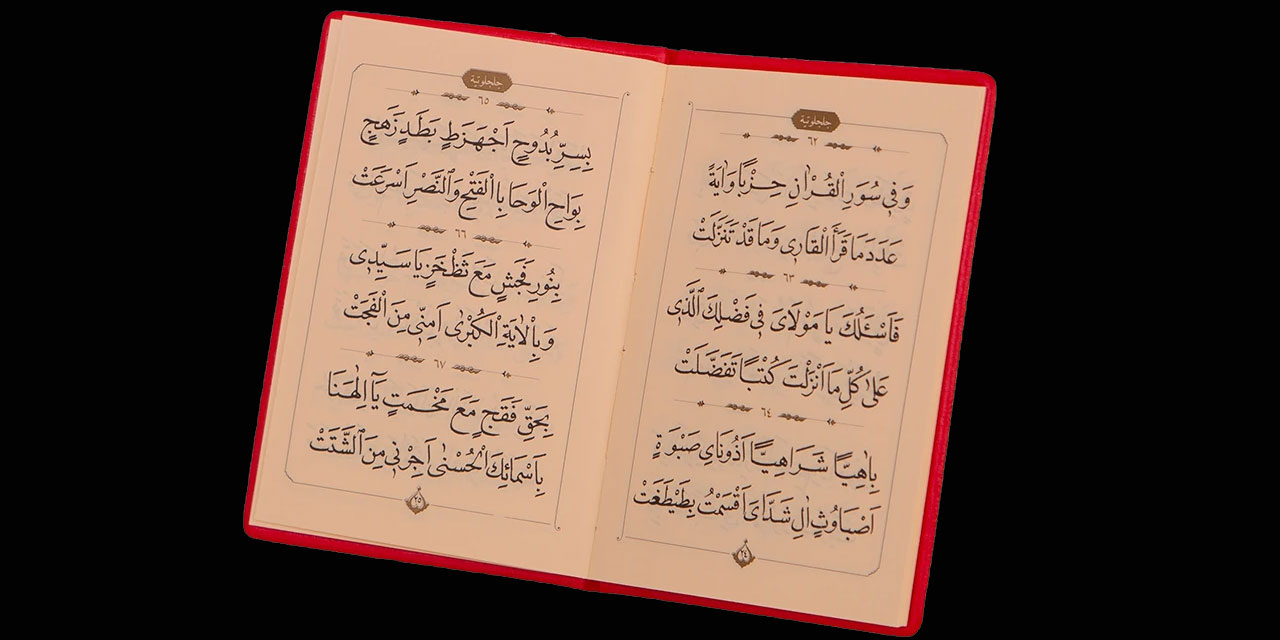 جلجلوتية
٦٢
وَفِي سُوَرِ الْقُرْاٰنِ حِزْبًا وَاٰيَةً
عَدَدَ مَا قَرَأَ الْقَارِى وَمَا قَدْ تَنَزَّلَتْ
٦٣
فَاَسْئَلُكَ يَا مَوْلَاىَ فِى فَضْلِكَ الَّذِى
عَلٰى كُلِّ مَا اَنْزَلْتَ كُتْبًا تَفَضَّلَتْ
٦٤
بِاٰهِيًّا شَرَاهِيًّا اَذُونَاىِ صَبْوَةٍ
اَصْبَاوُثٍ اٰلِ شَدَّاىَ اَقْسَمْتُ بِطَيْطَغَتْ
٢٤
جلجلوتية
٦٥
بِسِرِّ بُدُوحٍ اَجْهَزَطٍ بَطَدٍ زَهَجٍ
بِوَاحِ الْوَحَا بِالْفَتْحِ وَالنَّصْرِ اَسْرَعَتْ
٦٦
بِنُورِ فَجَشٍ مَعَ ثَظْخَزٍ يَا سَيِّدِى
وَبِالْاٰيَةِ الْكُبْرٰى اَمِنِّى مِنَ الْفَجَتْ
٦٧
بِحَقِّ فَقَجٍ مَعَ مَخْمَتٍ يَآ اِلٰهَنَا
بِاَسْمَائِكَ الْحُسْنٰى اَجِرْنِى مِنَ الشَّتَتْ
٢٥